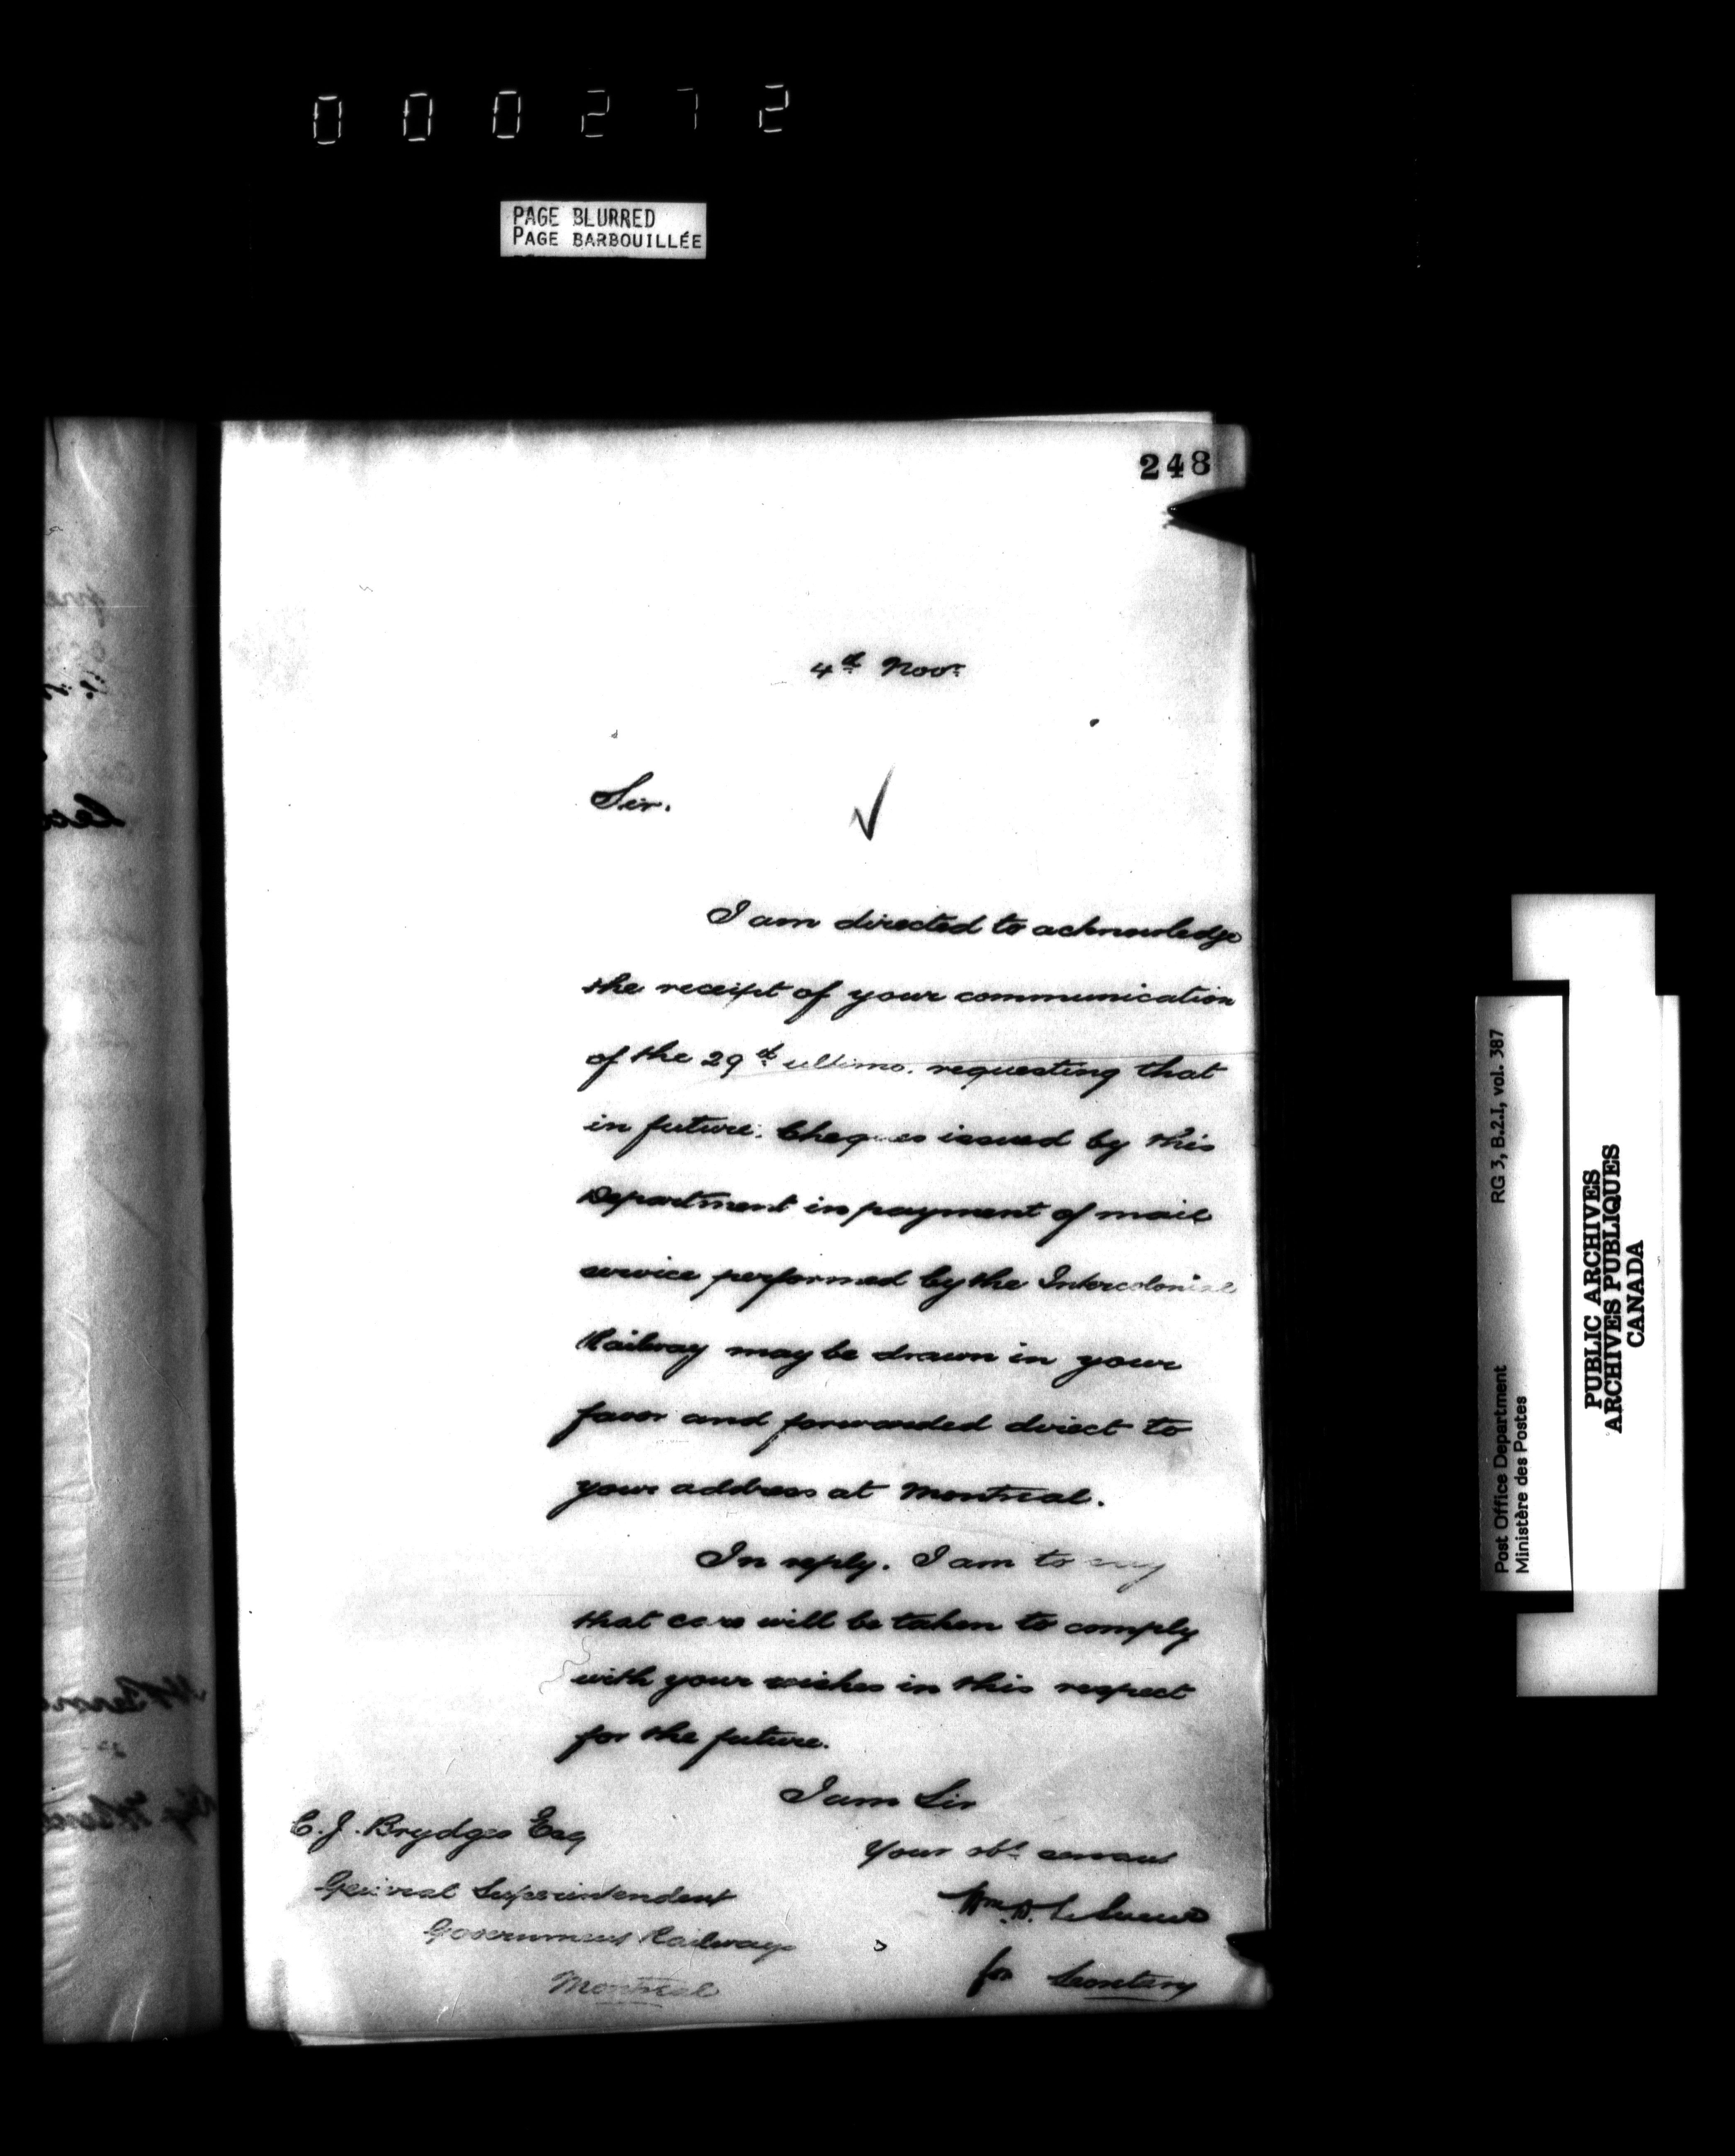 000272
PAGE BLURRED
PAGE BARBOUILLÉE
248
4th Novr
Sir.
I am directed to acknowledge
the receipt of your communication
of the 29th ultimo. requesting that
in future. Cheques issued by this
Department in payment of mail
service performed by the Intercolonial
Railway may be drawn in your
favor and forwarded direct to
your address at Montreal.
In reply. I am to say
that care will be taken to comply
with your wishes in this respect
for the future.
I am Sir
Your obt servant
Wm D. LeSueur
for Secretary
C. J. Brydges Esq
General Superintendent
Government Railways
Montreal
Post Office Department RG 3, B.2.I, vol. 387
Ministère des Postes
PUBLIC ARCHIVES
ARCHIVES PUBLIQUES
CANADA